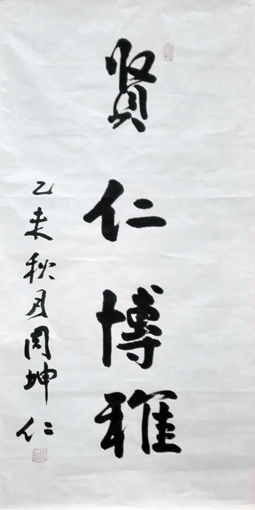 贤仁博雅
乙未秋月周坤仁